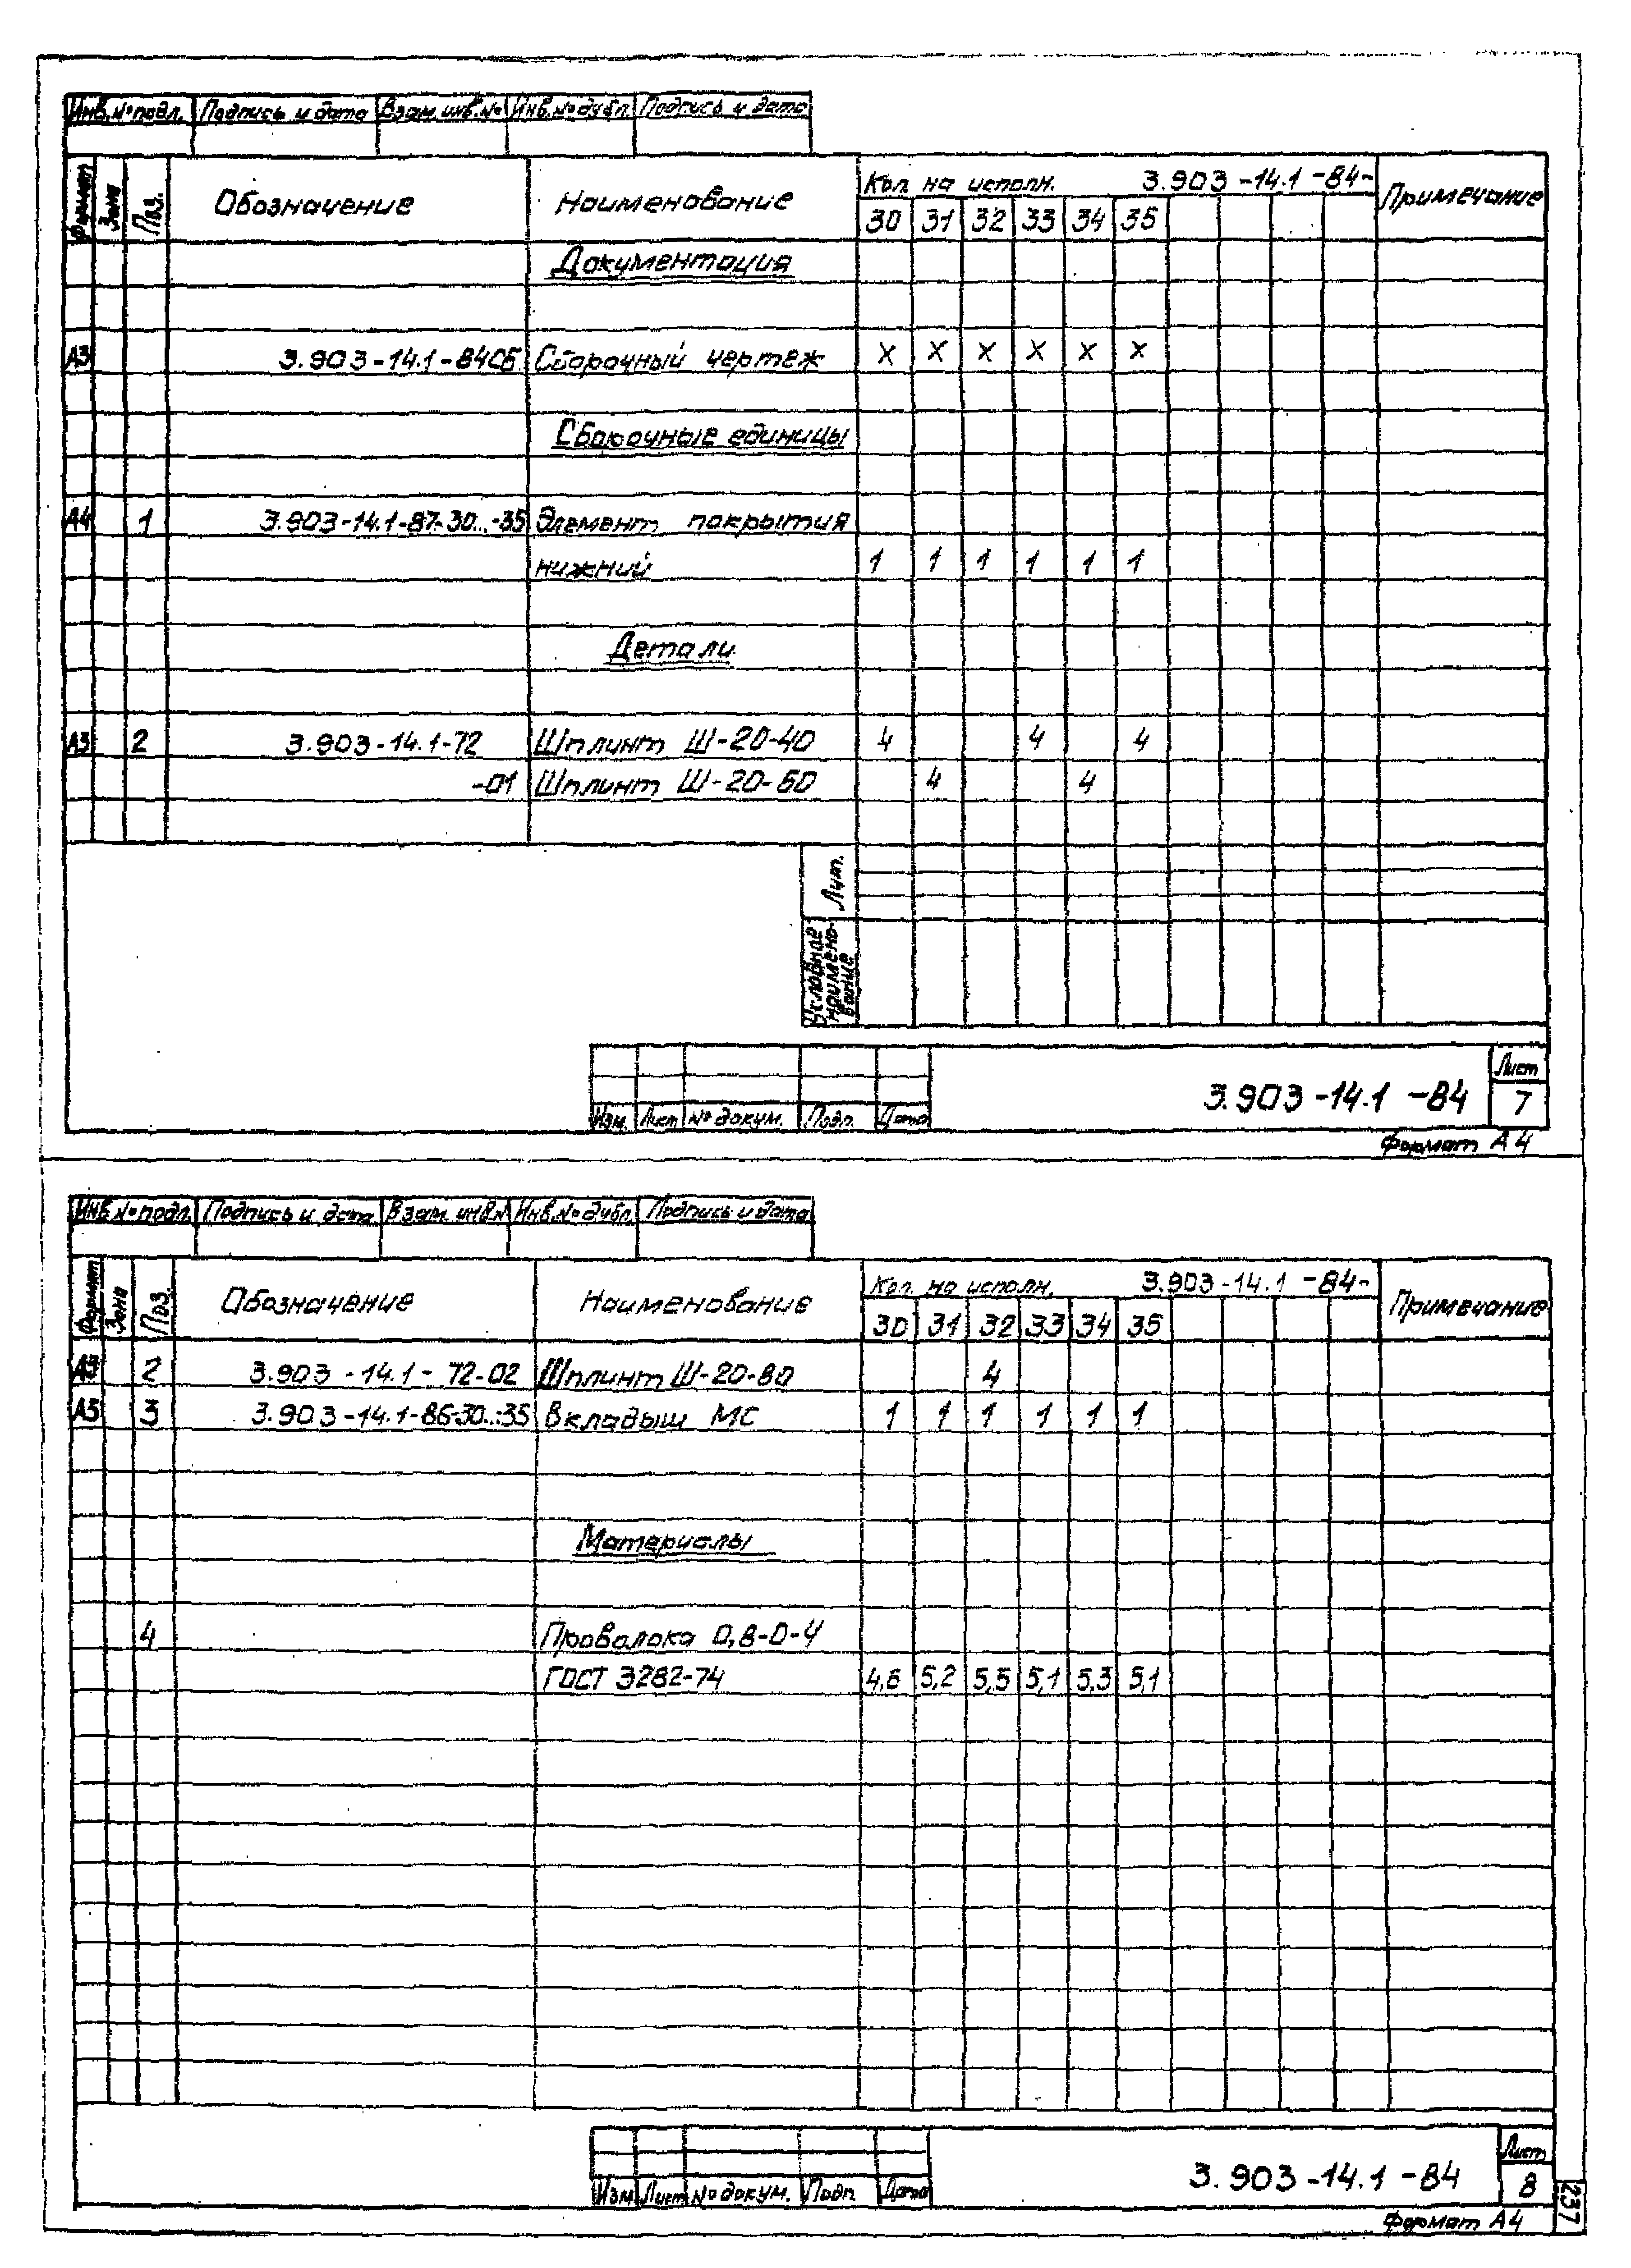 Инв.№ подл. Подпись и дата Взам.инв.№ Инв.№ дубл. Подпись и дата
Формат Зона Поз. Обозначение Наименование Кол. на исполн. 3.903-14.1-84- Примечание
30 31 32 33 34 35
Документация
А3 3.903-14.1-84СБ Сборочный чертеж X X X X X X
Сборочные единицы
А4 1 3.903-14.1-87-30...-35 Элемент покрытия
нижний 1 1 1 1 1 1
Детали
А3 2 3.903-14.1-72 Шплинт Ш-20-40 4 4 4
-01 Шплинт Ш-20-60 4 4
Лит.
Условное
наимено-
вание
Лист
3.903-14.1-84 7
Изм. Лист № докум. Подп. Дата
Формат А4
Инв.№ подл. Подпись и дата Взам. инв.№ Инв.№ дубл. Подпись и дата
Формат Зона Поз. Обозначение Наименование Кол. на исполн. 3.903-14.1-84- Примечание
30 31 32 33 34 35
А3 2 3.903-14.1-72-02 Шплинт Ш-20-80 4
А3 3 3.903-14.1-86-30...-35 Вкладыш МС 1 1 1 1 1 1
Материалы
4 Проволока 0,8-О-Ч
ГОСТ 3282-74 4,6 5,2 5,5 5,1 5,3 5,1
Лист
3.903-14.1-84 8
Изм Лист № докум. Подп Дата
Формат А4
237